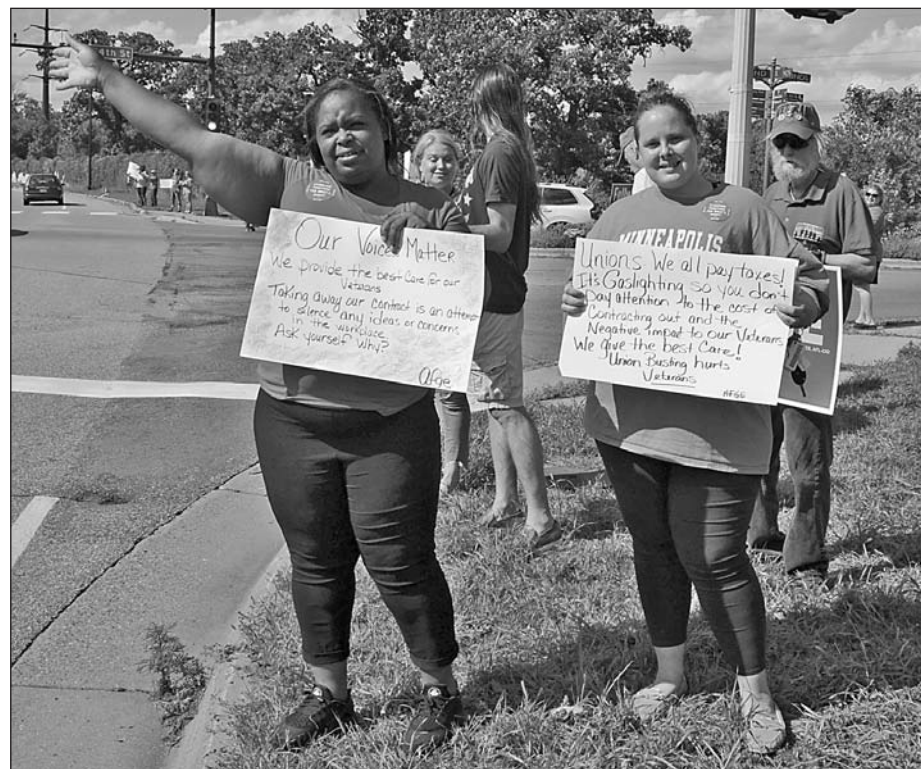 4th St
Our Voices Matter
We provide the best care for our
Veterans
Taking away our contract is an attempt
to silence any ideas or concerns
in the workplace
Ask yourself Why?
afge
MINNEAPOLIS
Unions We all pay taxes!
It's Gaslighting so you don't
pay attention to the cost of
Contracting out and the
Negative impat to our Veterans
We give the best Care!
Union Busting hurts
Veterans
AFGE
AFL-CIO